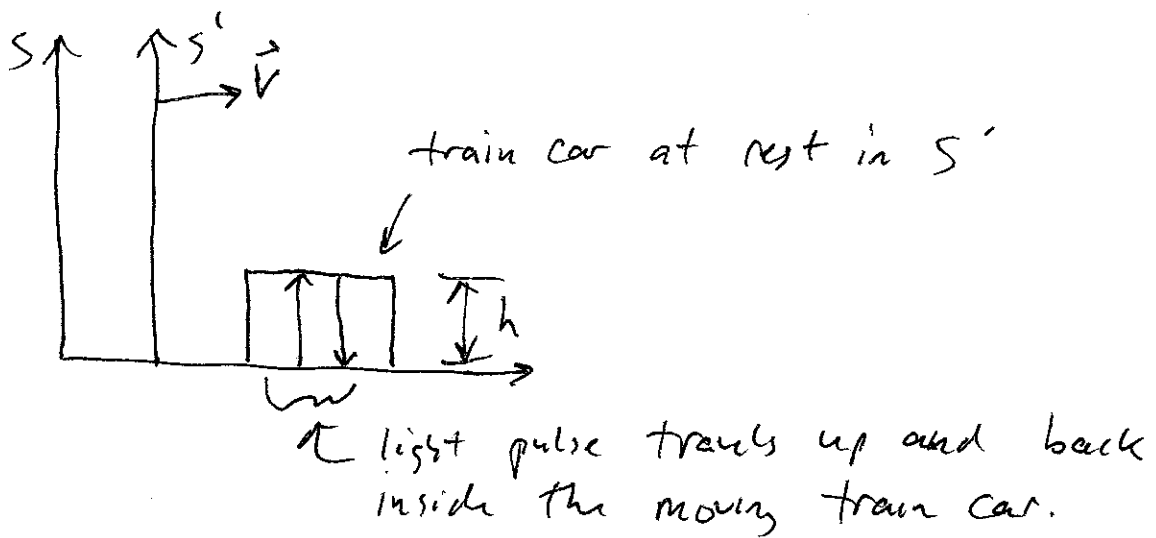 S S′
V⃗
train car at rest in S′
h
light pulse travels up and back
inside the moving train car.